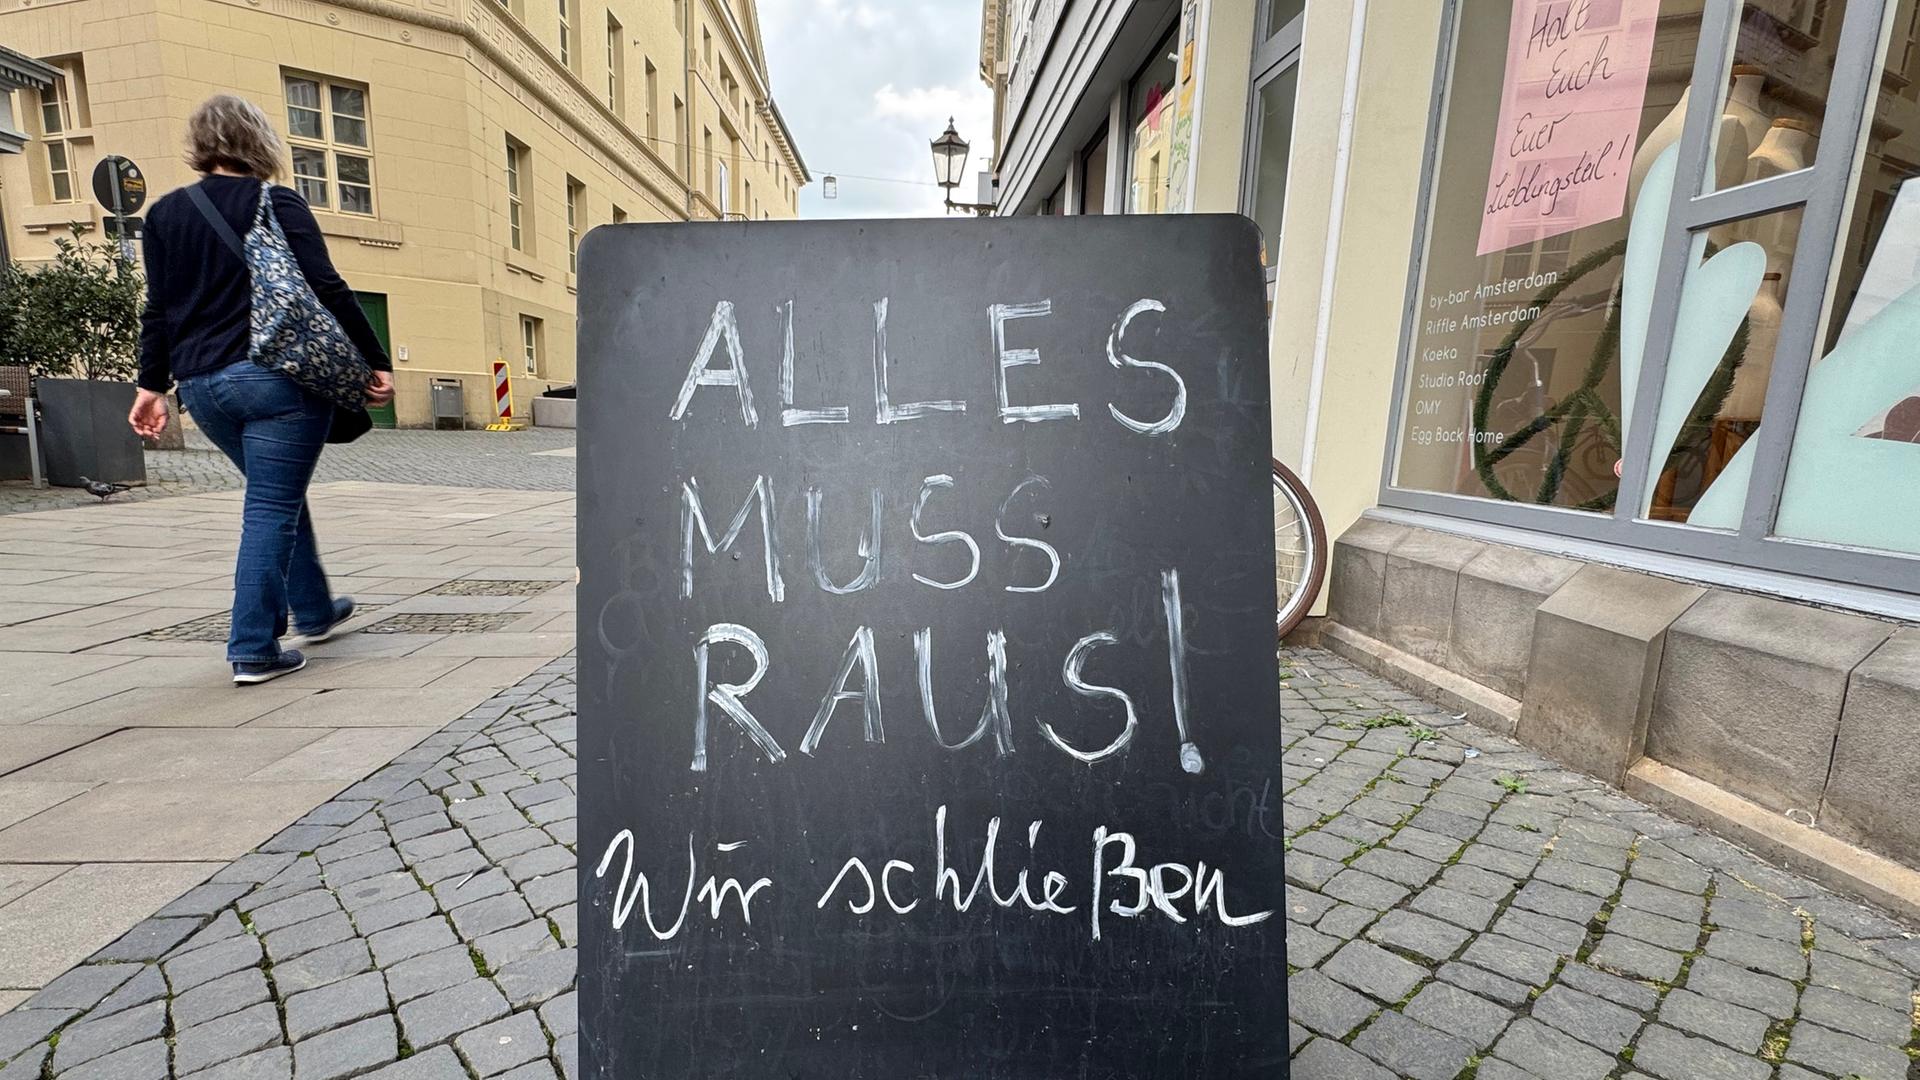 ALLES
MUSS
RAUS!
Wir schließen
Holt
Euch
Euer
Lieblingsteil!
by-bar Amsterdam
Riffle Amsterdam
Koeka
Studio Roof
OMY
Egg Back Home